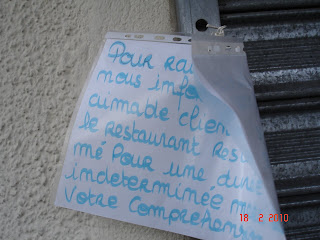 Pour rai
nous info
aimable clien
le restaurant Res
mé Pour une du
indeterminée m
Votre Comprehension
18 2 2010